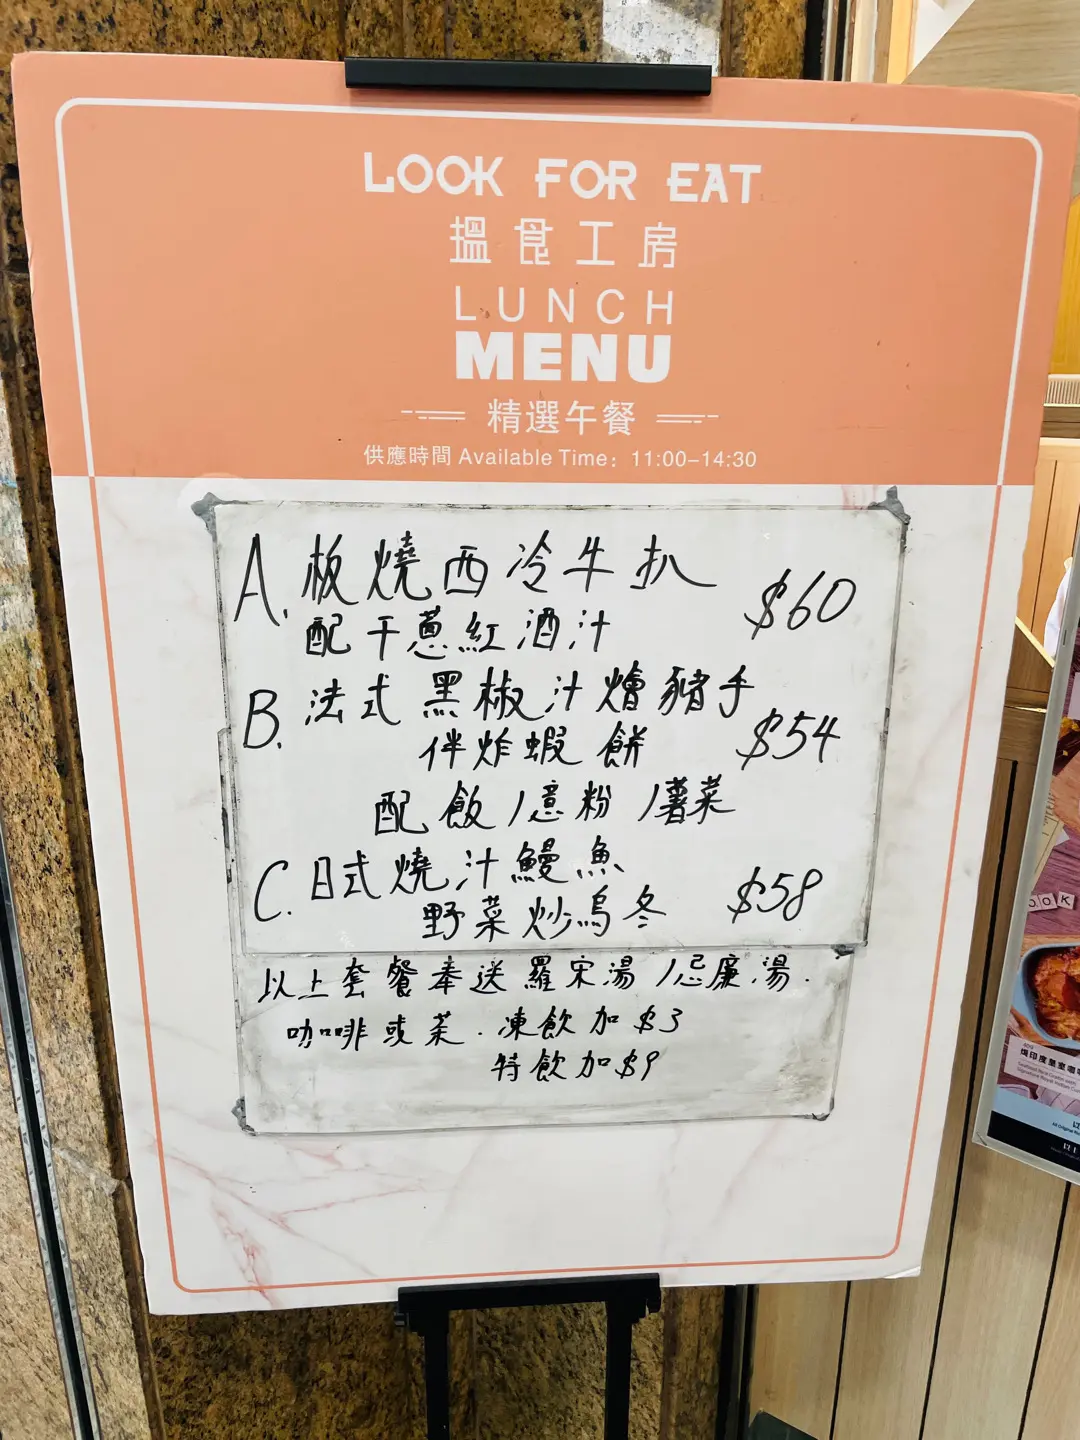 LOOK FOR EAT
搵食工房
LUNCH
MENU
精選午餐
供應時間 Available Time: 11:00-14:30
A. 板燒西冷牛扒 $60
配干蔥紅酒汁
B. 法式黑椒汁燴豬手 $54
伴炸蝦餅
配飯/意粉/薯菜
C. 日式燒汁鰻魚 $58
野菜炒烏冬
以上套餐奉送羅宋湯/忌廉湯.
咖啡或茶.凍飲加$3
特飲加$9
OOK